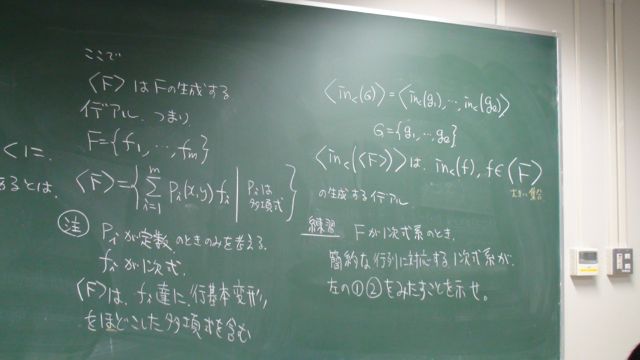 ここで
〈F〉はFの生成する
イデアル. つまり
F={f₁, …, fₘ}
<に.
あるとは.
〈F〉={ Σ_{i=1}^{m} Pᵢ(x,y) fᵢ | Pᵢは多項式 }
注 Pᵢが定数のときのみを考える.
fᵢが1次式.
〈F〉は, fᵢ達に,行基本変形,
をほどこした多項式を含む
〈in<(G)〉=〈in<(g₁), …, in<(gℓ)〉
G={g₁, …, gℓ}
〈in<(〈F〉)〉は, in<(f), f∈〈F〉
集合
の生成するイデアル
練習 Fが1次式系のとき,
簡約な行列に対応する1次式系が,
左の①②をみたすことを示せ。